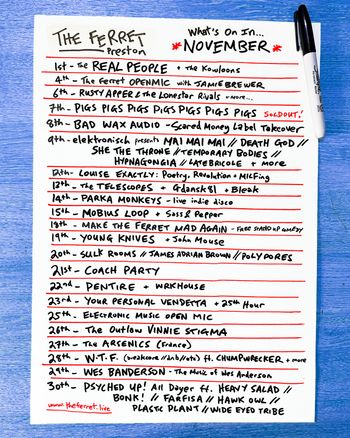 THE FERRET
Preston
What's On In...
*NOVEMBER*
1st - The REAL PEOPLE + The Kowloons
4th - The Ferret OPENMIC with JAMIE BREWER
6th - RUSTY APPER & the Lonestar Rivals + more...
7th - PIGS PIGS PIGS PIGS PIGS PIGS PIGS SOLDOUT!
8th - BAD WAX AUDIO - Scared Money Label Takeover
9th - elektronisch presents MAI MAI MAI // DEATH GOD //
SHE THE THRONE // TEMPORARY BODIES //
HYPNAGONGIA // LATEBRICOLE + more
12th - LOUISE EXACTLY: Poetry, Revolution + MICFing
13th - The TELESCOPES + Gdansk81 + Bleak
14th - PARKA MONKEYS - live indie disco
15th - MOBIUS LOOP + Sass & Pepper
18th - MAKE THE FERRET MAD AGAIN - FREE STAND UP COMEDY
19th - YOUNG KNIVES + John Mouse
20th - SULK ROOMS // JAMES ADRIAN BROWN // POLYPORES
21st - COACH PARTY
22nd - PENTIRE + WRKHOUSE
23rd - YOUR PERSONAL VENDETTA + 25th Hour
25th - ELECTRONIC MUSIC OPEN MIC
26th - The Outlow VINNIE STIGMA
27th - The ARSENICS (France)
28th - W.T.F. (breakcore//dnb//etc) ft. CHUMPWRECKER + more
29th - WES BANDERSON - The Music of Wes Anderson
30th - PSYCHED UP! All Dayer ft. HEAVY SALAD //
BONK! // FARFISA // HAWK OWL //
PLASTIC PLANT // WIDE EYED TRIBE
www.theferret.live